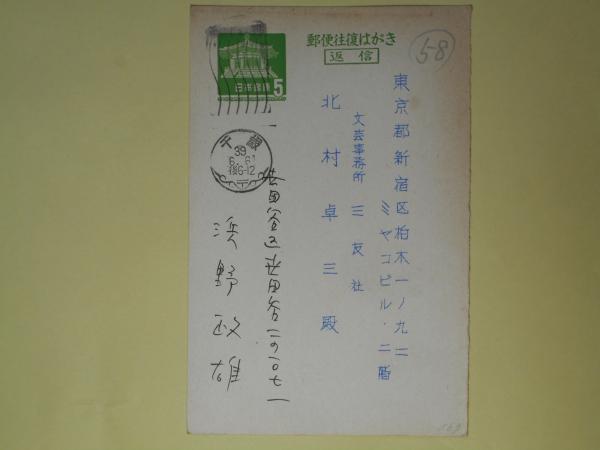 郵便往復はがき
返信
58
日本郵便
5
千歳
39
6.6
後6-12
東京都新宿区柏木一ノ九二
ミヤコビル・二階
文芸事務所 三友社
北村卓三殿
世田谷区世田谷二の一〇七一
浜野政雄